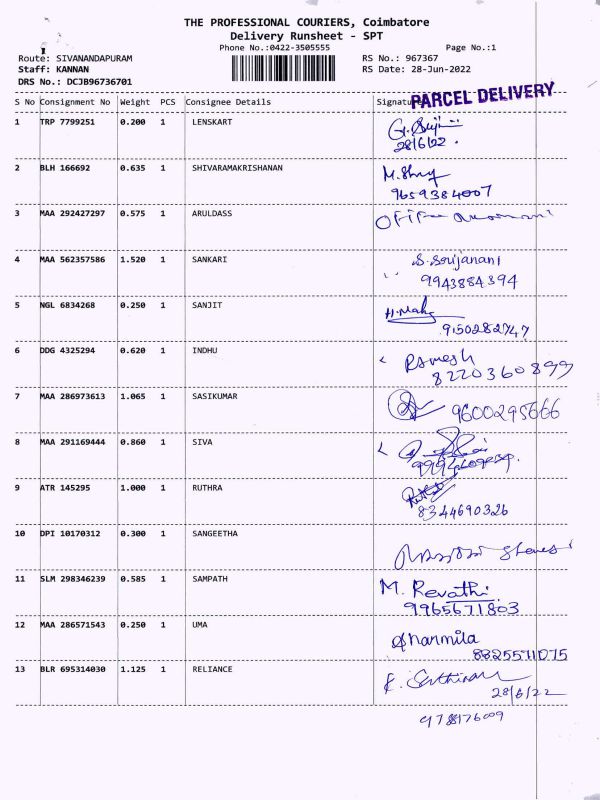 THE PROFESSIONAL COURIERS, Coimbatore
Delivery Runsheet - SPT
Phone No.:0422-3505555 Page No.:1
Route: SIVANANDAPURAM RS No.: 967367
Staff: KANNAN RS Date: 28-Jun-2022
DRS No.: DCJB96736701
PARCEL DELIVERY
S No Consignment No Weight PCS Consignee Details Signature
1 TRP 7799251 0.200 1 LENSKART
28/6/22.
2 BLH 166692 0.635 1 SHIVARAMAKRISHANAN
9659384007
3 MAA 292427297 0.575 1 ARULDASS
4 MAA 562357586 1.520 1 SANKARI S. Srijanani
9943884394
5 NGL 6834268 0.250 1 SANJIT
9150282747
6 DDG 4325294 0.620 1 INDHU Ramesh
8220360899
7 MAA 286973613 1.065 1 SASIKUMAR 9600295666
8 MAA 291169444 0.860 1 SIVA
9 ATR 145295 1.000 1 RUTHRA
8344690326
10 DPI 10170312 0.300 1 SANGEETHA
11 SLM 298346239 0.585 1 SAMPATH M. Revathi
9965671803
12 MAA 286571543 0.250 1 UMA Sharmila
8825571075
13 BLR 695314030 1.125 1 RELIANCE
28/6/22